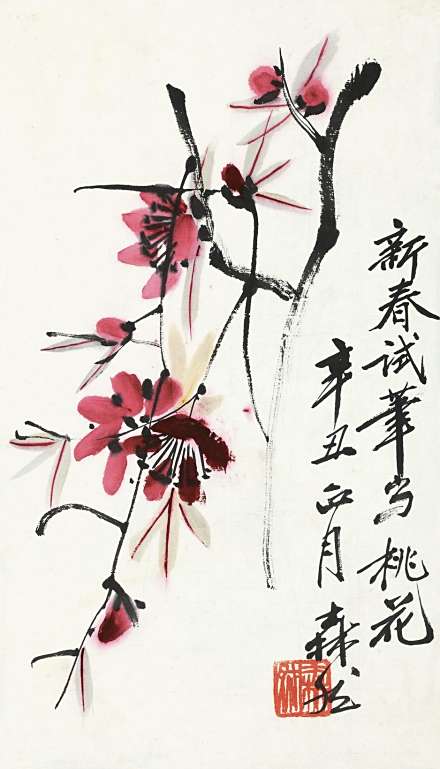 新春试筆写桃花
辛丑正月 森然